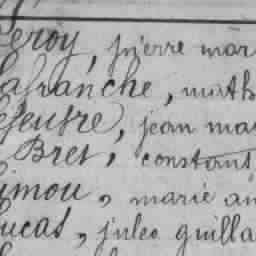 Leroy, pierre mar
Lafranche, math
Lefeutre, jean ma
Bret, constant
Simou, marie an
Lucas, jules guilla